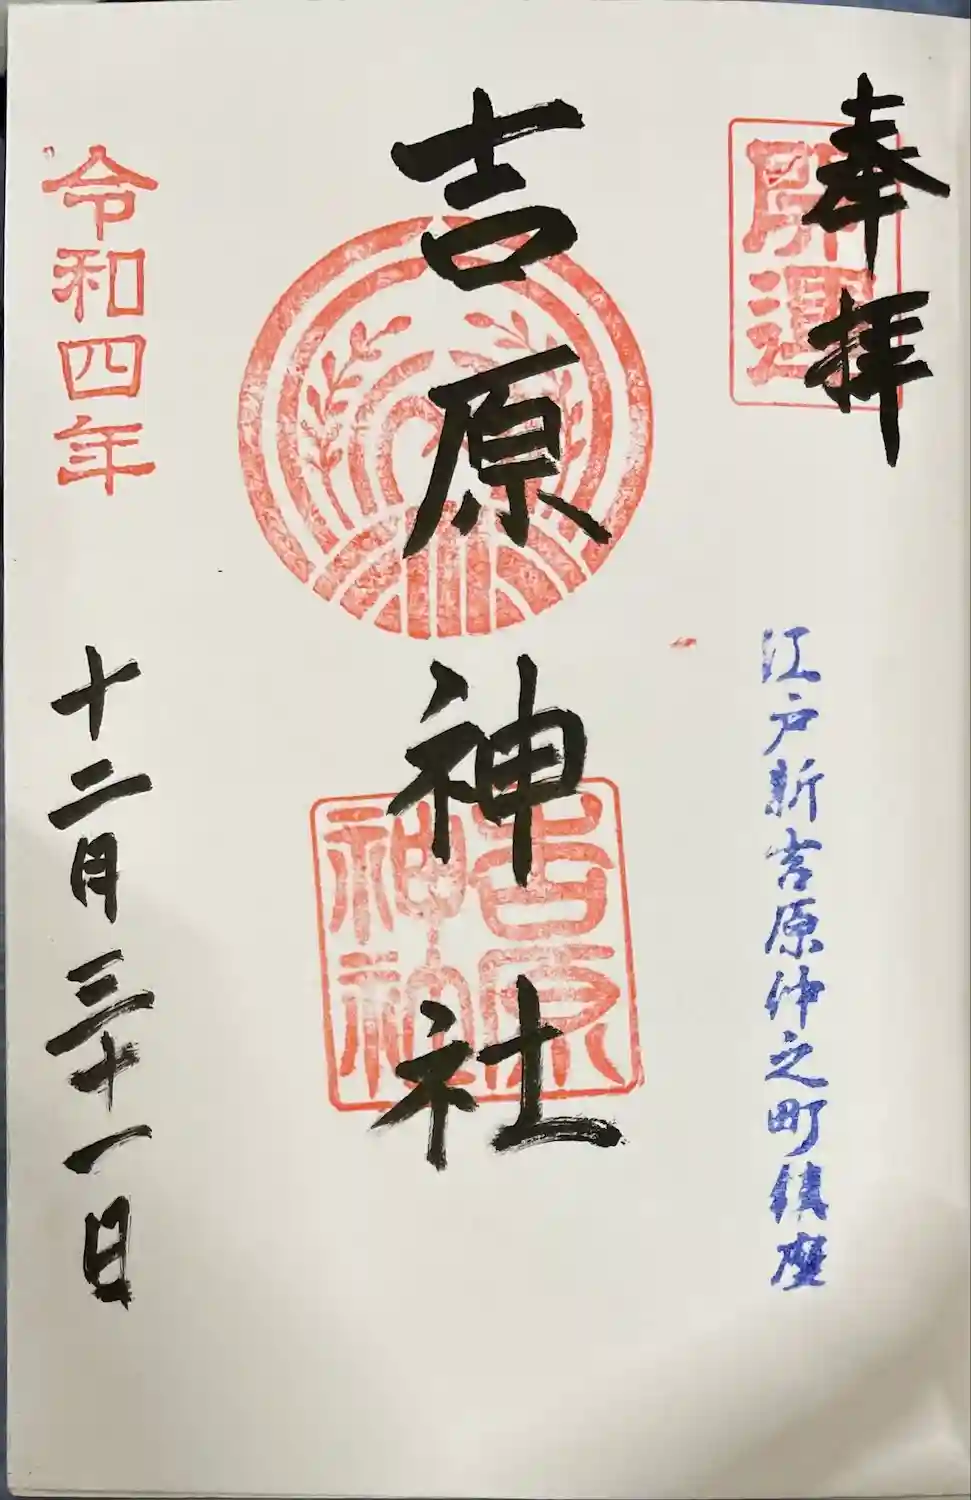 奉拝
開運
江戸新吉原仲之町鎮座
吉原神社
吉原
神社
令和四年
十二月三十一日